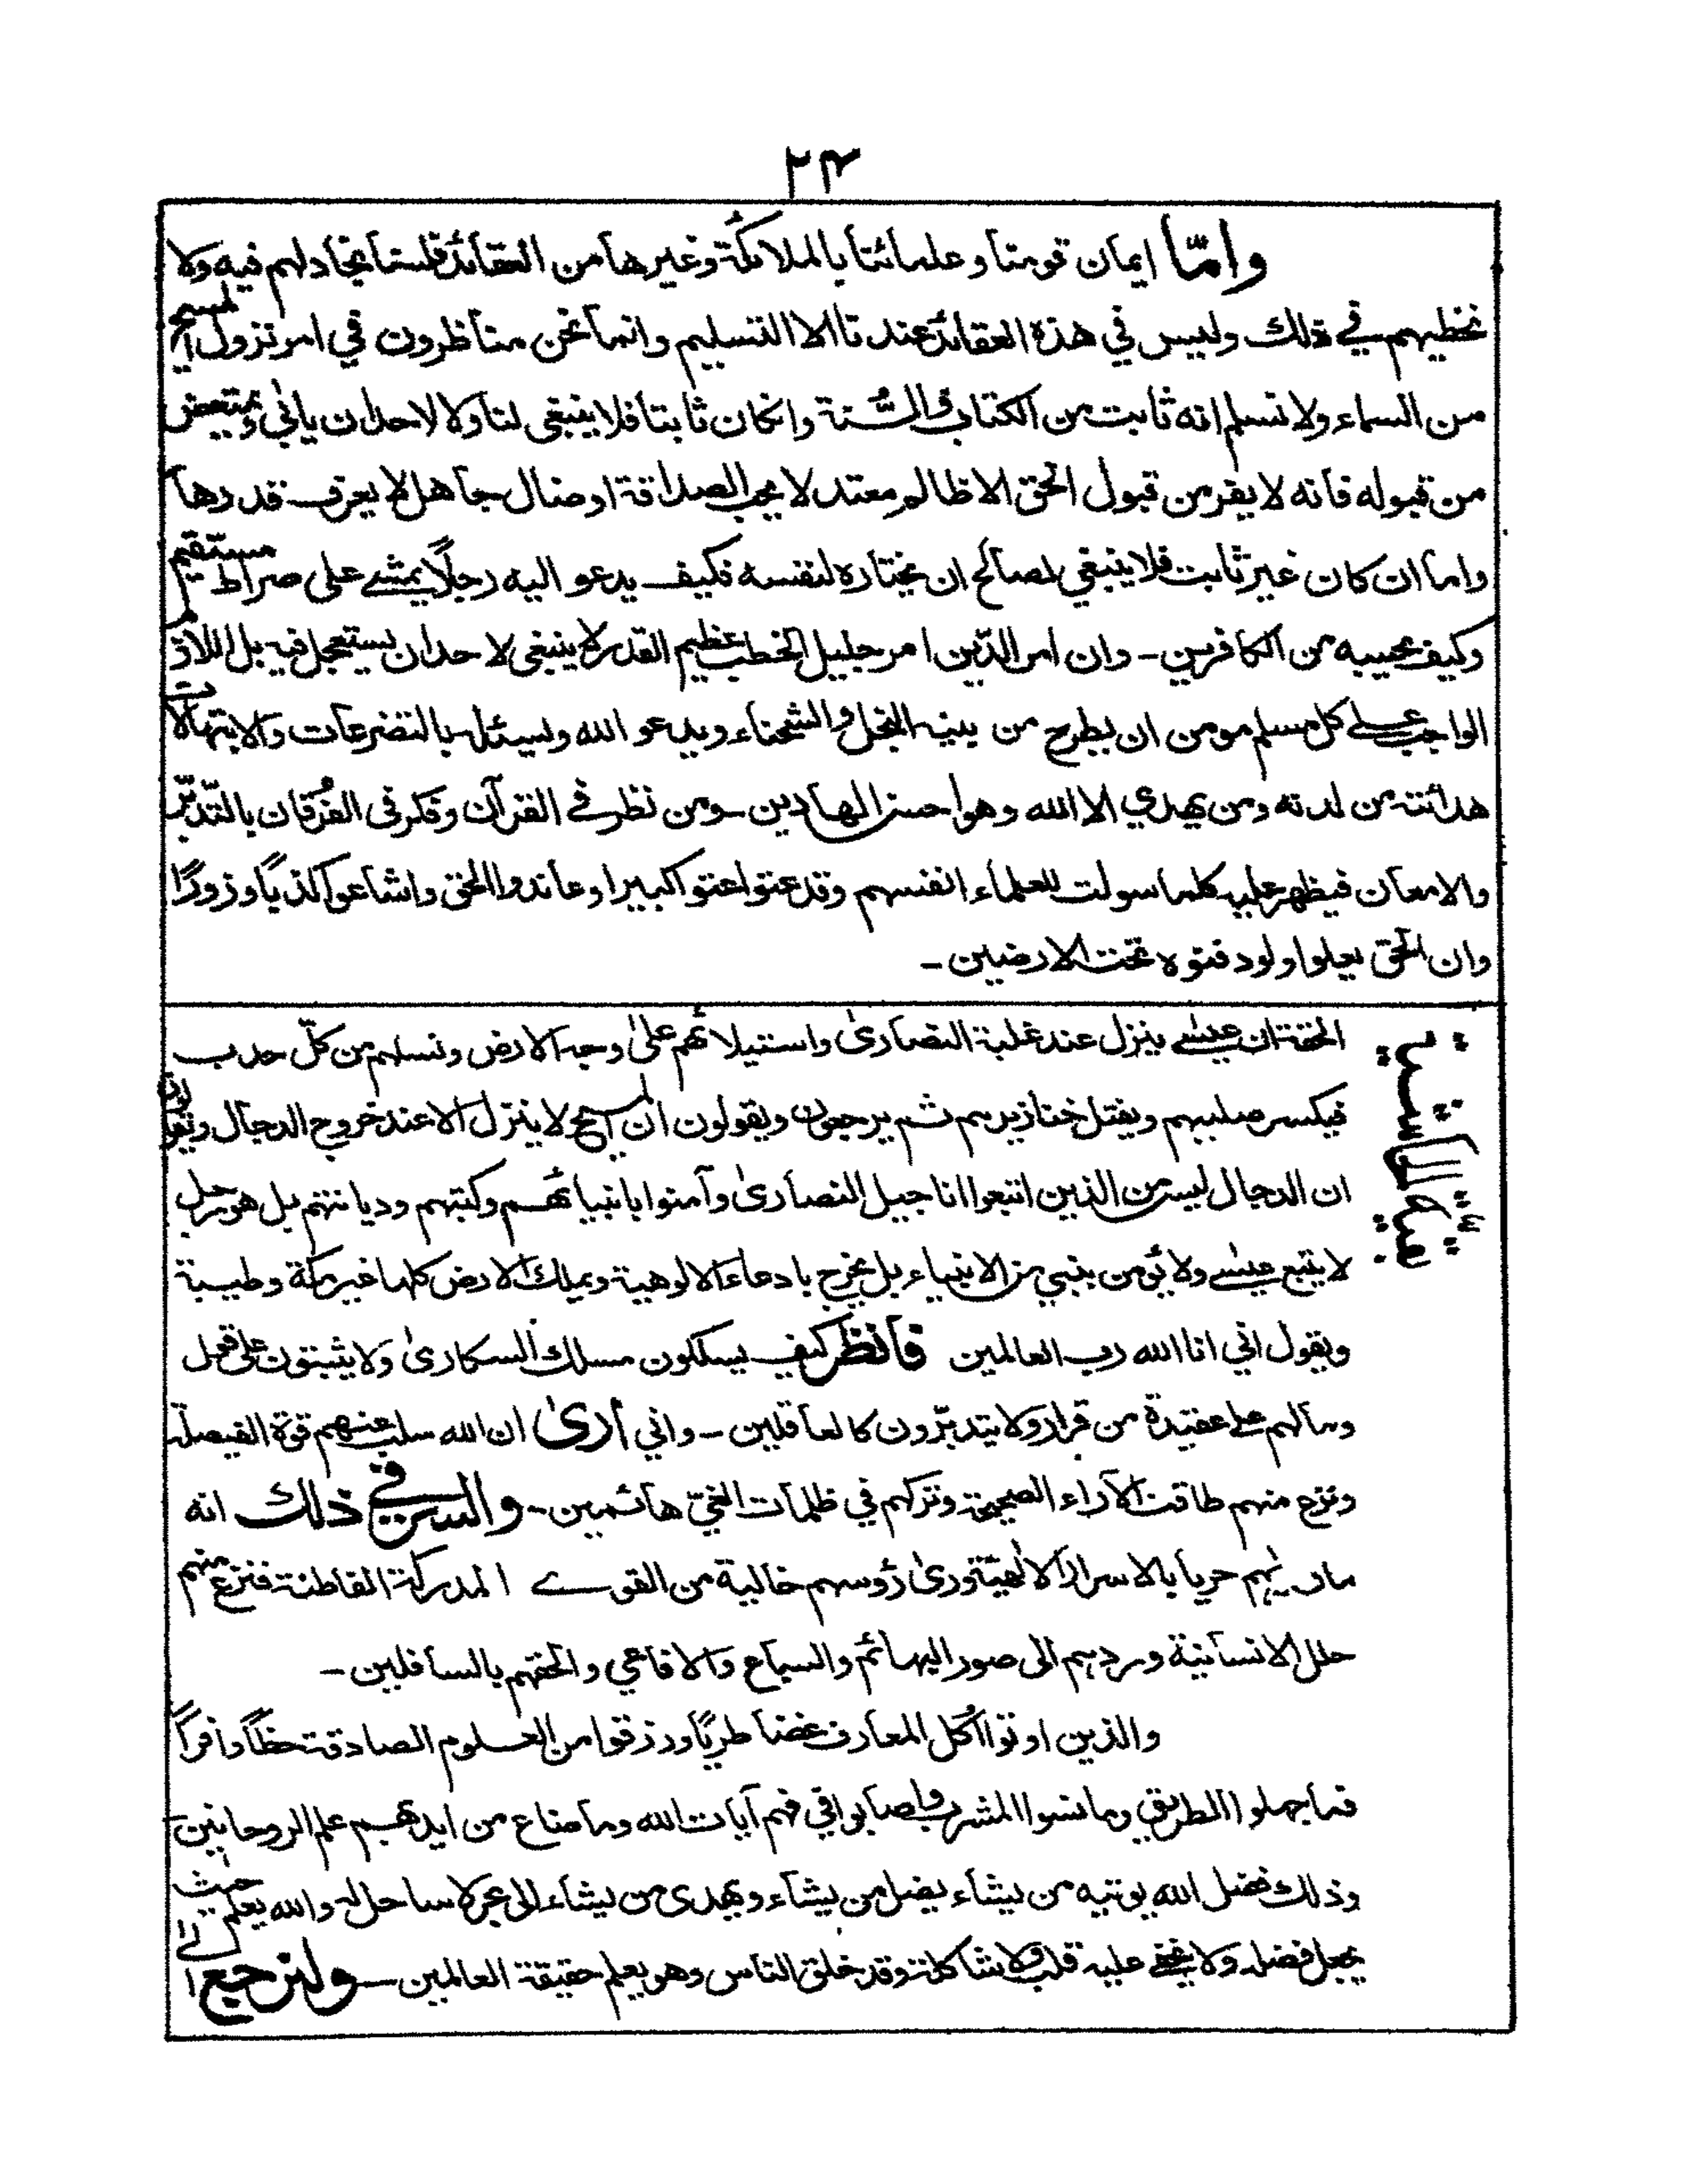 ۲۴
وامّا ايمان قومنا وعلمائنا بالملائكة وغيرها من العقائد فلسنا نجادلهم فيه ولا
نخطيهم في ذلك وليس في هذه العقائد عندنا الا التسليم وانما نحن مناظرون في امر نزول المسيح
من السماء ولا نسلم انه ثابت من الكتاب والسُّنة وانكان ثابتا فلا ينبغى لنا ولا لاحد ان يابٰي ويمتعض
من قبوله فانه لا يفر من قبول الحق الا ظالم معتد لا يحب الصداقة او ضال جاهل لا يعرف قدرها
واما ان كان غير ثابت فلا ينبغي لصالح ان يختاره لنفسه فكيف يدعو اليه رجلًا يمشے على صراط مستقيم
وكيف يحسبه من الكافرين ــ وان امر الدّين امر جليل الخطب عظيم القدر لا ينبغى لاحد ان يستعجل فيه بل اللازم
الواجب علے كل مسلم مومن ان يطرح من بينه البخل والشحناء ويدعو الله ويسئله بالتضرعات والابتهالات
هدايته من لدنه ومن يهدي الا الله وهو احسن الهادين ــ ومن نظر فے القرآن وفكر فى الفُرقان بالتّدبّر
والامعان فيظهر عليه كلما سولت للعلماء انفسهم وقد عتوا عتوا كبيرا وعاندوا الحق واشاعوا كذبًا وزورًا
وان الحق يعلوا ولو دفنوه تحت الارضين ــ
بقيّة الحاشية
الحقة ان عيسٰے ينزل عند غلبة النصارىٰ واستيلائهم علىٰ وجه الارض ونسلهم من كلّ حدب
فيكسر صليبهم ويقتل خنازيرهم ثم يرجعون ويقولون ان المسيح لا ينزل الا عند خروج الدجال ويقولون
ان الدجال ليس من الذين اتبعوا اناجيل النصارىٰ وآمنوا بانبيائهم وكتبهم وديانتهم بل هو رجل
لا يتبع عيسٰے ولا يؤمن بنبي من الانبياء بل يخرج بادعاء الالوهية ويملك الارض كلها غير مكة وطيبة
ويقول اني انا الله رب العالمين فانظر كيف يسلكون مسلك السكارىٰ ولا يثبتون على قول
وما لهم علے عقيدة من قرار ولا يتدبّرون كالعاقلين ــ واني أرىٰ ان الله سلب عنهم قوة الفيصلة
ونزع منهم طاقت الآراء الصحيحة وتركهم في ظلمات الغيّ هائمين ــ والسر في ذلك انه
ما يريهم حريا بالاسرار الالٰهية ورىٰ رؤسهم خالية من القوے المدركة الفاطنة فنزع منهم
حلل الانسانية وردهم الى صور البهائم والسباع والافاعي والحقهم بالسافلين ــ
والذين اوتوا اُكُل المعارف غضا طريًا ورزقوا من العلوم الصادقة حظًا وافرًا
فما جهلوا الطريق وما نسوا المشرب واصابوا في فهم آيات الله وما ضاع من ايديهم علم الروحانيين
وذلك فضل الله يوتيه من يشاء يضل من يشاء ويهدى من يشاء الى بحر لا ساحل له والله يعلم حيث
يجعل فضله ولا يخفے عليه قلب ولا شاكلة وقد خلق الناس وهو يعلم حقيقة العالمين ــ ولنرجع الے